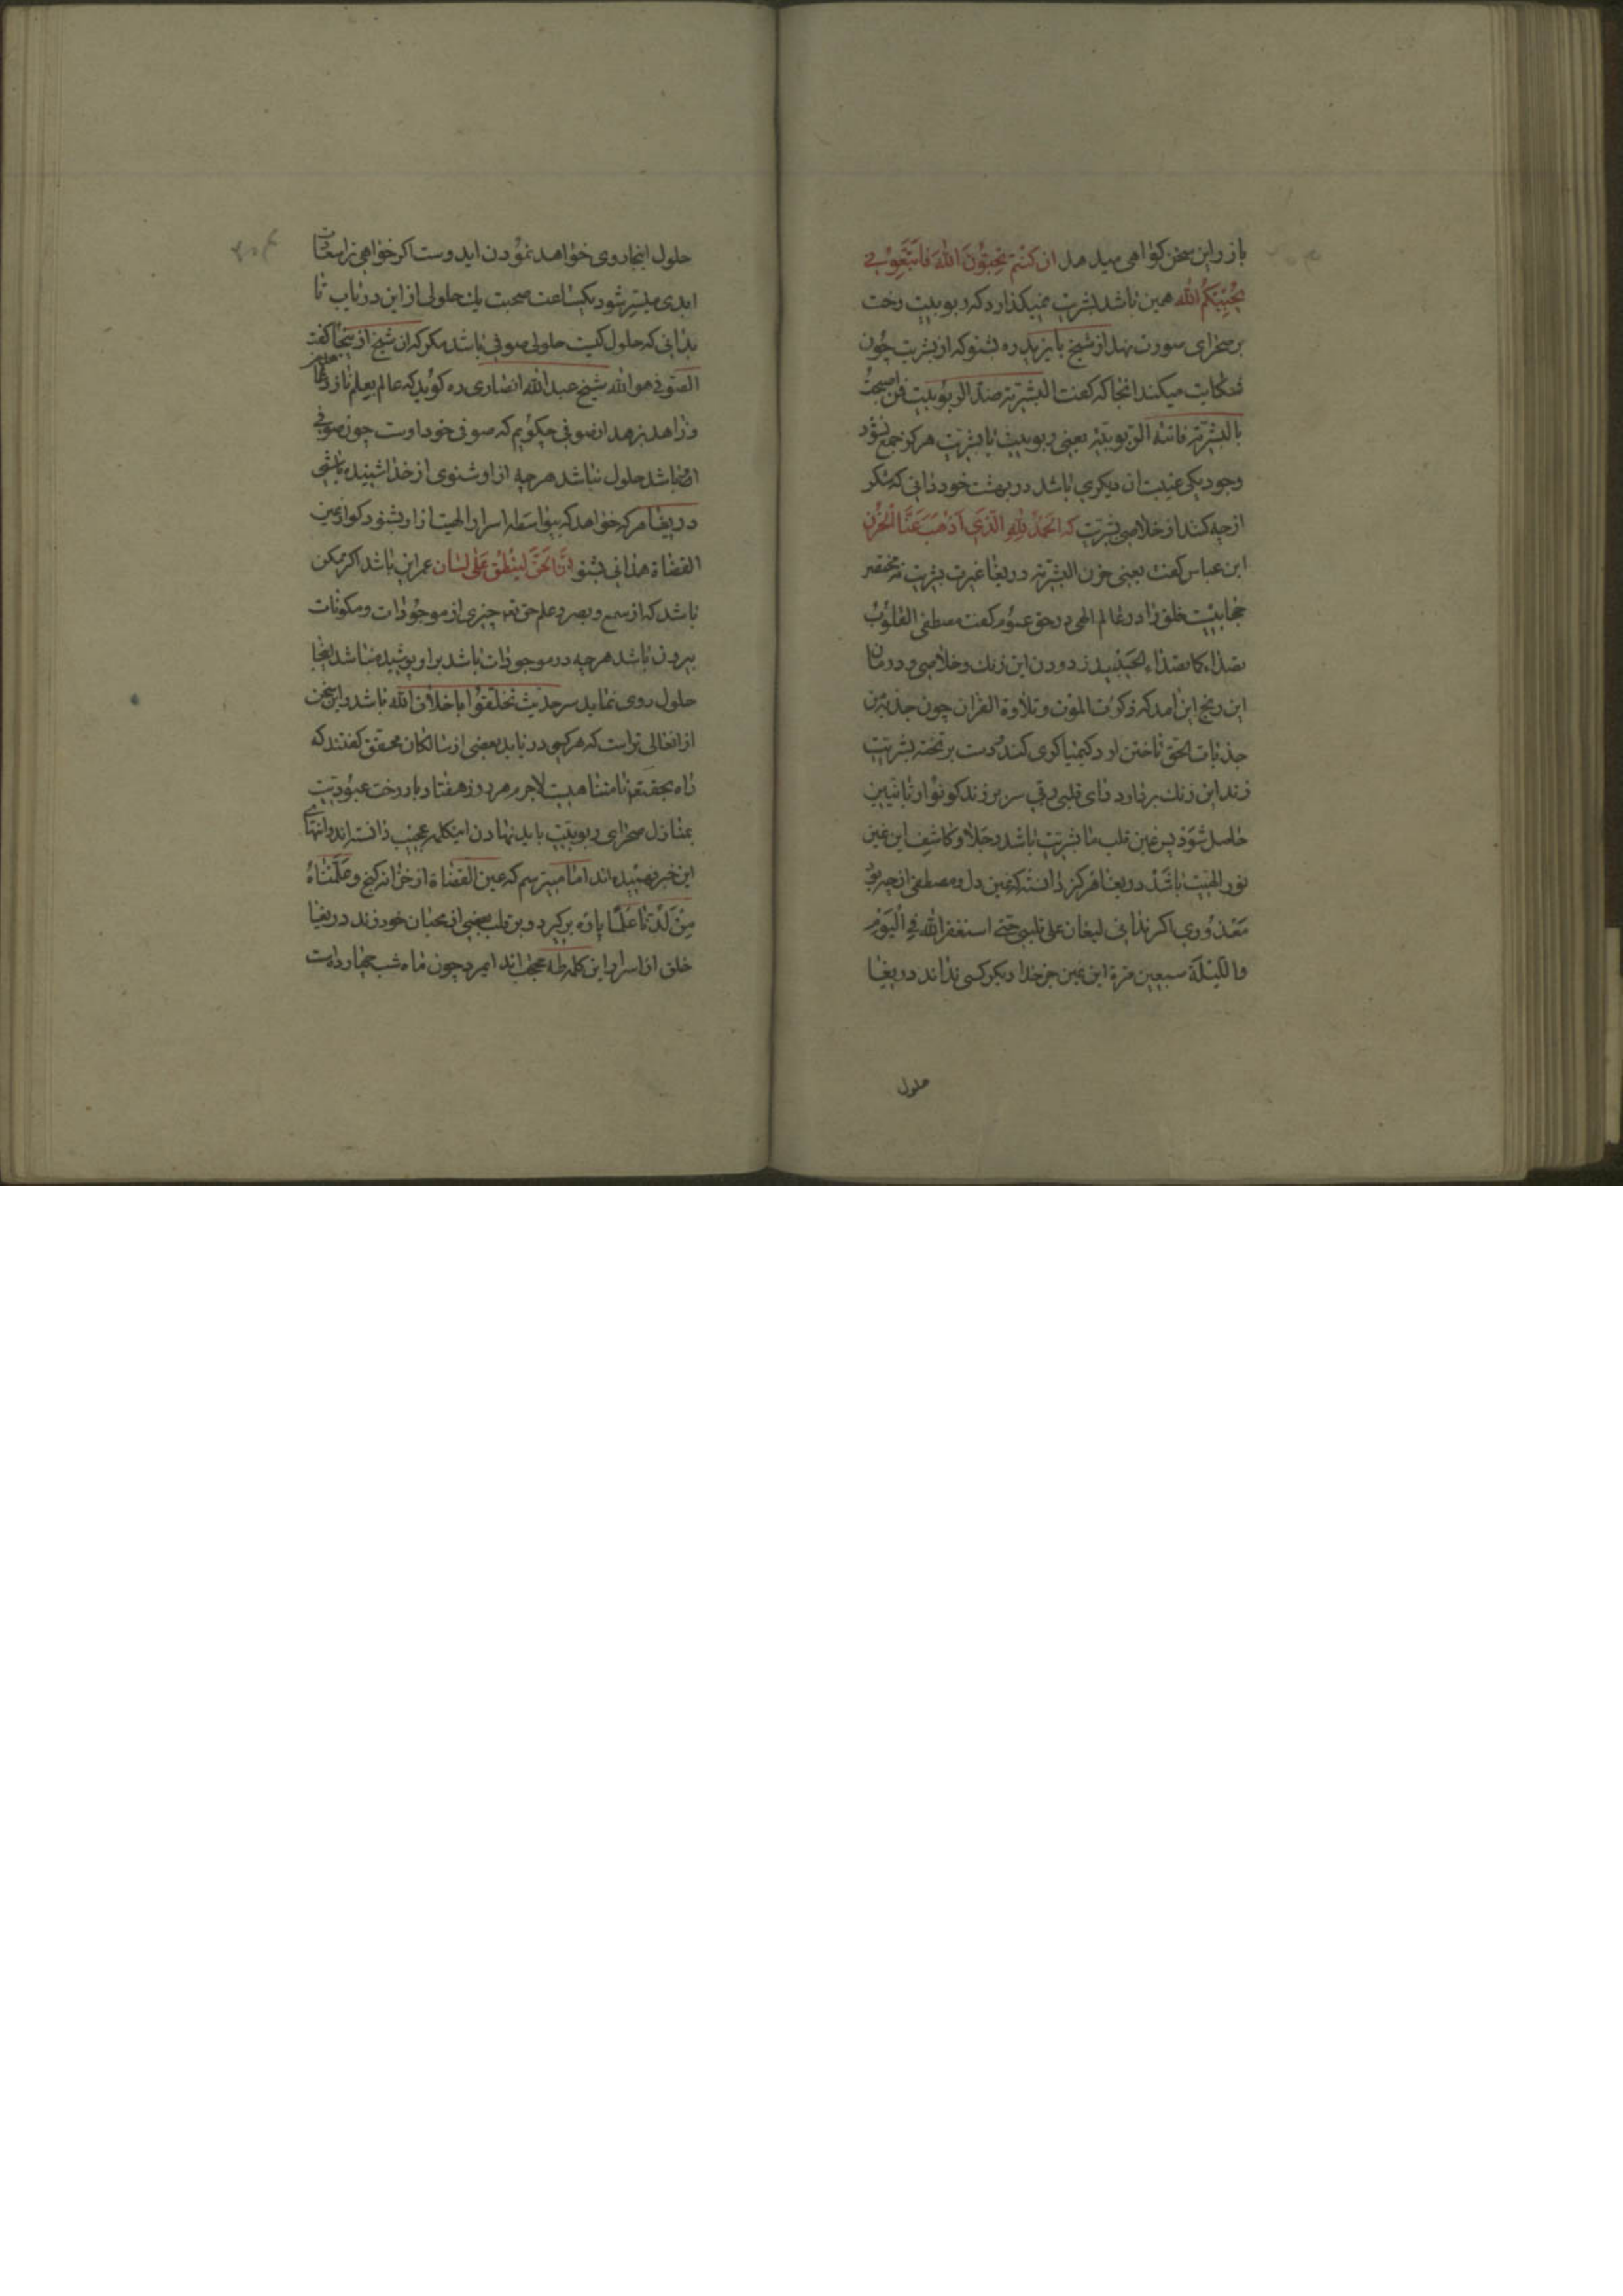 باز و این سخن کواهی میدهد ان کنتم تحبون الله فاتبعونی
یحببکم الله همین باشد بشریت نمیکذارد که ربوبیت رخت
بر صحرای صورت نهد از شیخ بایزید ره بشنو که از بشریت چون
شکایت میکند انجا که کفت البشریة ضد الربوبیت فمن احتجب
بالبشریة فاتته الربوبیة یعنی ربوبیت با بشریت هرکز جمع نشود
وجود یکی غیبت ان دیکری باشد در بهشت خود دانی که شکر
از چه کنند از خلاصی بشریت که الحمد لله الذی اذهب عنا الحزن
ابن عباس کفت یعنی حزن البشریة دریغا غیرت بشریت نه مختصر
حجابیست خلق را در عالم الهی در حق عموم کفت مصطفی القلوب
تصداء کما تصداء الحدید زدودن این زنک و خلاصی و درمان
این رنج این امد که ذکر الموت و تلاوة القران چون جذبة من
جذبات الحق تاختن اورد کیمیاکری کند دست بر تخته بشریت
زند این زنک بردارد رای قلبی ربی سر برزند کونوا ربانیین
حاصل شود پس غین قلب ما بشریت باشد و جلا و کاشف این غین
نور الهیت باشد دریغا هرکز دانسته که غین دل مصطفی از چه بود
معذوری اکر ندانی لیغان علی قلبی حتی استغفر الله فی الیوم
واللیلة سبعین مرة این غین جز خدا دیکر کسی نداند دریغا
حلول
حلول اینجا روی خواهد نمودن ایدوست اکر خواهی ترا سعادت
ابدی میسر شود یکساعت صحبت یک حلولی از این دریاب تا
بدانی که حلول کیست حلولی صوفی باشد مکر که ان شیخ از اینجا کفت
الصوفی هو الله شیخ عبدالله انصاری ره کوید که عالم بعلم نازد
و زاهد بزهد از صوفی چکویم که صوفی خود اوست چون صوفی
او باشد حلول نباشد هرچه از او شنوی از خدا شنیده باشی
دریغا هرکه خواهد که بیواسطه اسرار الهیت از او بشنود کو از عین
القضاة همدانی بشنو ان الحق لینطق علی لسان عمر این باشد اکر ممکن
باشد که از سمع و بصر و علم حق تع چیزی از موجودات و مکونات
بیرون باشد هرچه در موجودات باشد بر او پوشیده نباشد اینجا
حلول روی نماید سر حدیث تخلقوا باخلاق الله باشد و این سخن
از ان عالی تر است که هر کسی دریابد بعضی از سالکان محقق کفتند که
راه بحقیقة نامتناهیست لاجرم هر روز هفتاد بار رخت عبودیت
بمنازل صحرای ربوبیت باید نهادن اینکلمه عجیب دانسته اند و انتهای
این خبر نفهمیده اند اما میترسم که عین القضاة از خزانه کنج و علمناه
من لدنا علما پاره برکیرد و بر قلب بعضی از محبان خود زند دریغا
خلق از اسرار این کلمه طه محجوب اند ای مرد چون ماه شب چهارده است